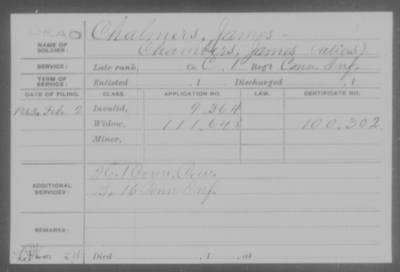 DEAD
NAME OF SOLDIER: Chalmers, James -
Chambers, James (alias)
SERVICE: Late rank, Co. C, 1 Reg't Conn Inf.
TERM OF SERVICE: Enlisted , 1 Discharged , 1
DATE OF FILING. CLASS. APPLICATION NO. LAW. CERTIFICATE NO.
Feb. Invalid, 9.264
Widow, 111,698 100,302
Minor,
ADDITIONAL SERVICES: 1 Conn.
16 Conn Inf.
REMARKS:
Died , 1 , at